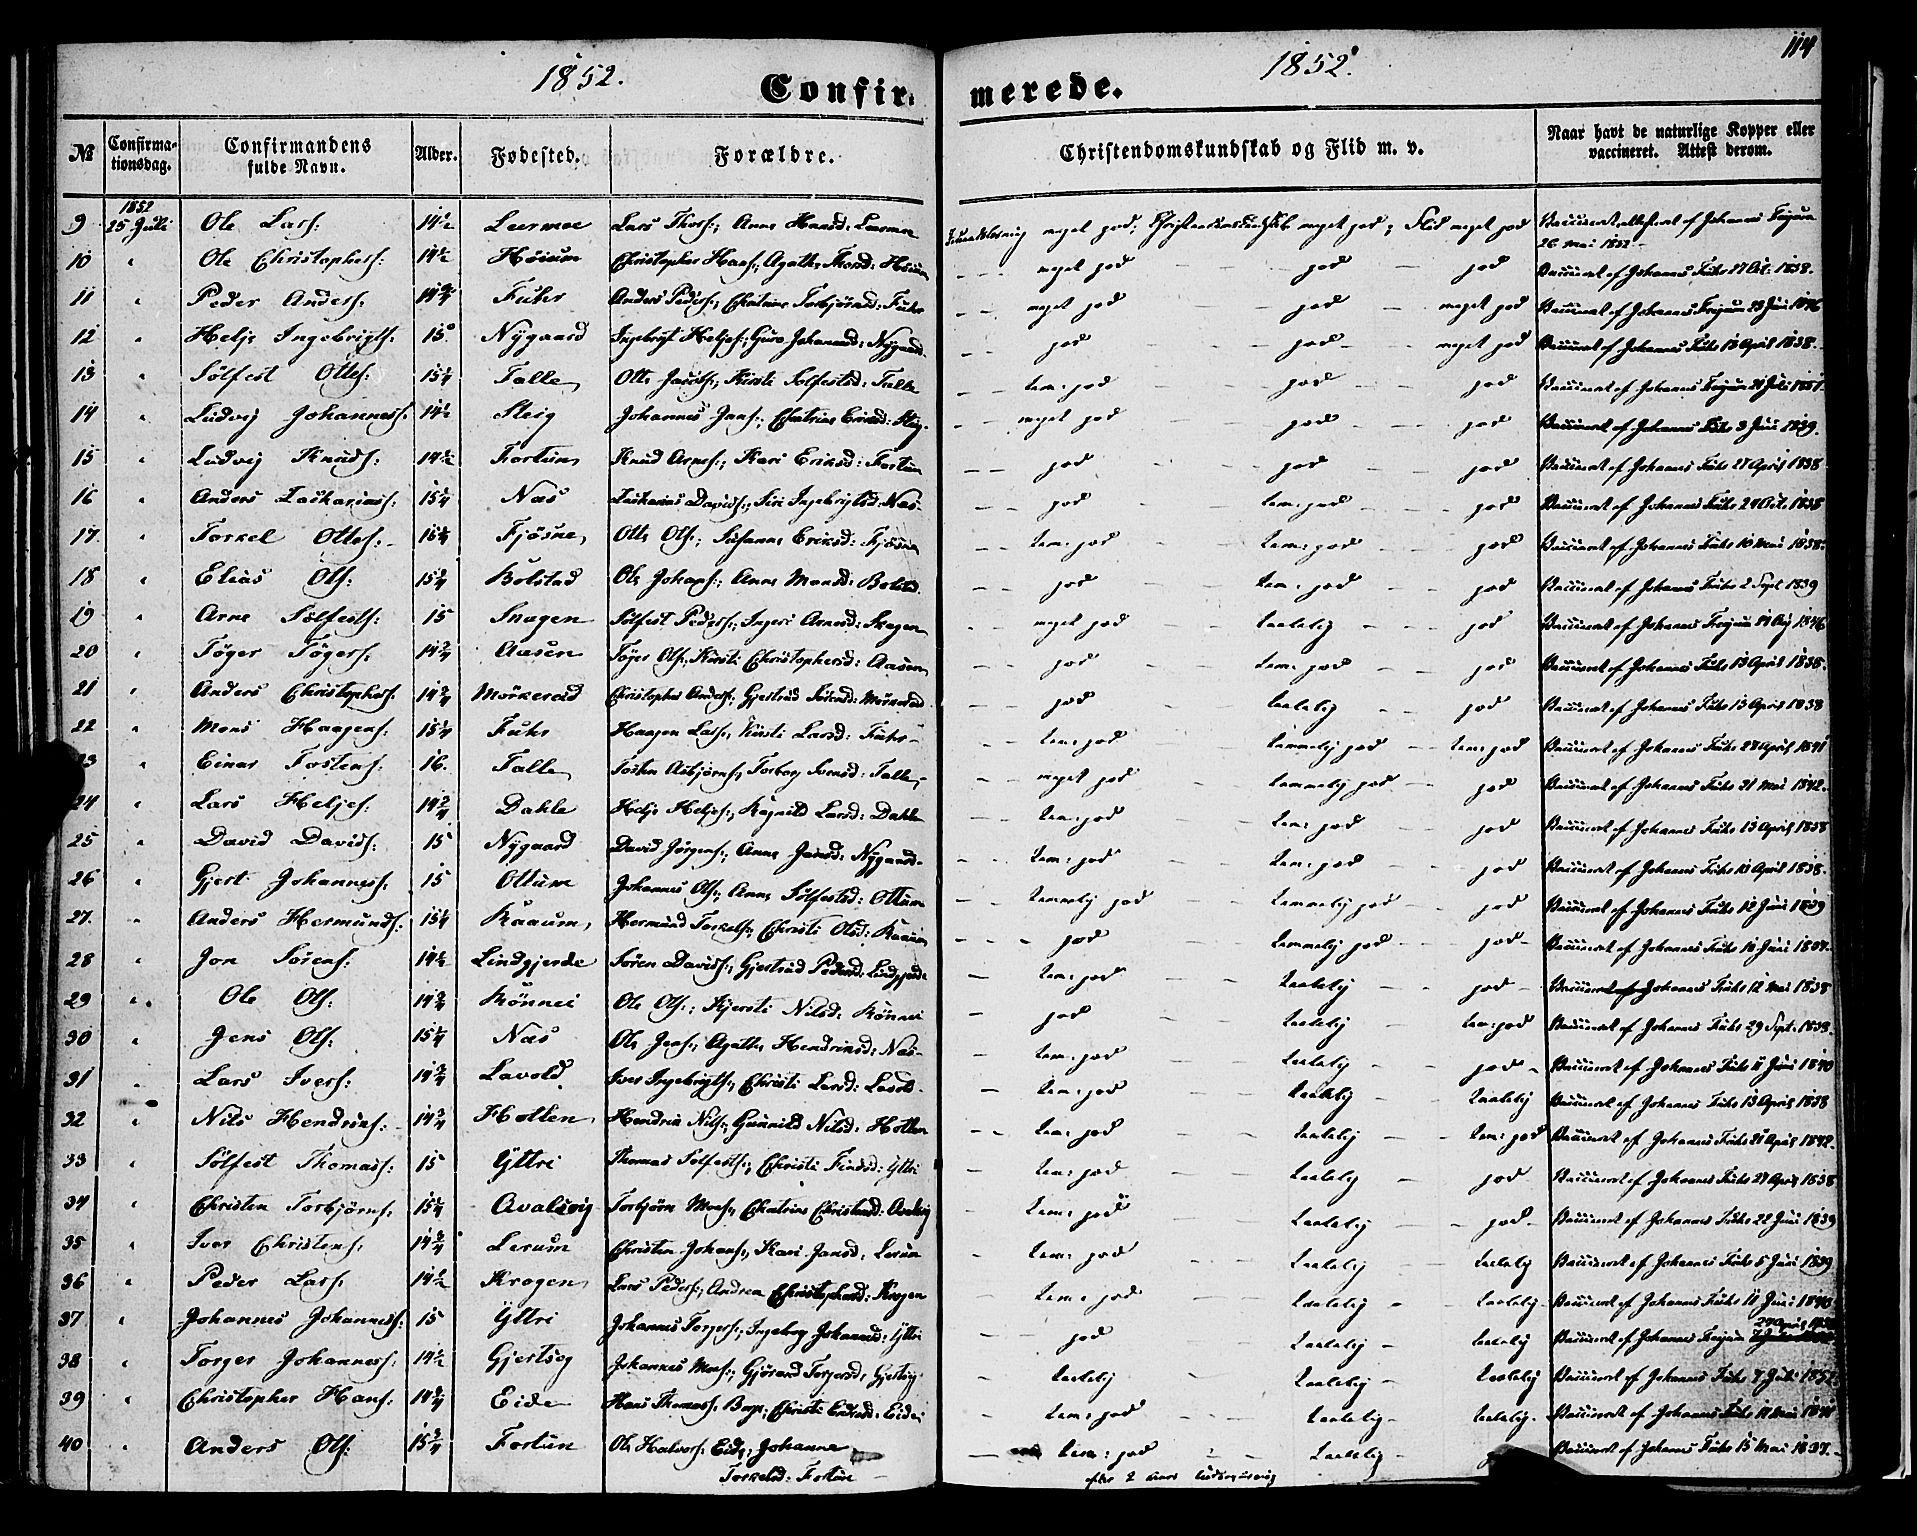 1852.
Confir-
1852.
merede.
114
№
Confirma-
tionsdag.
Confirmandens
fulde Navn.
Alder.
Fødested.
Forældre.
Christendomskundskab og Flid m. v.
Naar havt de naturlige Kopper eller
vaccineret. Attest derom.
1852
9 25 Juli Ole Lars: 14½ Leermoe Lars Thors:, Anna Hansd: Leermoe meget god; Christendomskundskab meget god; Flid meget god Vaccineret attesteret af Johannes
26 Mai 1852
10 " Ole Christophers: 14½ Høium Christopher Hans:, Agathe Høium - - meget god - god - god Vaccineret af Johannes Fuhr 1838.
11 " Peder Anders: 14¾ Fuhr Anders Peders:, Torbjørnsd: Fuhr - - meget god - god - meget god Vaccineret af Johannes Juni
12 " Helje Ingebrigts: 15 Nygaard Ingebrigt Heljes:, Guro Johannesd: Nygaard - - god - god - meget god Vaccineret af Johannes Fuhr 13 April 1838.
13 " Sølfest Ottes: 15¼ Talle Otte Kirsti Solfestsd: Talle - - tem: god - god - god Vaccineret af Johannes Juli
14 " Ludvig Johanness: 14½ Steig Johannes Jans:, Chatrine Eriksd: Steig - - meget god - god - god Vaccineret af Johannes Fuhr 3 Juni 1839.
15 " Ludvig Knuds: 14½ Fortun Knud Arnes:, Kari Eriksd: Fortun - - god - god - god Vaccineret af Johannes Fuhr 27 April 1838
16 " Anders Zacharias: 15¼ Næs Zacharias Davids:, Siri Ingebrigtsd: Næs - - god - tem: god - god Vaccineret af Johannes Fuhr 24 Oct. 1838
17. " Torkel Ottes: Fjøsne Otte Ols:, Susanne Eriksd: Fjøsne - - tem: god - tem: god - god Vaccineret af Johannes Fuhr Mai 1838.
18 " Elias Ols: Bolstad Ole Johans:, Anna Monsd: Bolstad - - god - tem: god - god Vaccineret af Johannes Fuhr 2 Sept 1839
19 " Arne Sølfests: 15 Skagen Sølfest Peders:, Ingeri Arnesd: Skagen - - meget god - taalelig - god Vaccineret af Johannes 1846
20 " Tøger Tøgers: 14¾ Aasen Tøger Ols:, Kirsti Christophersd: Aasen - - god - tem: god - god Vaccineret af Johannes Fuhr 13 April 1838.
21 " Anders Christophers: 14¾ Mørkerød Christopher Anders:, Gjertrud Mørkerød - - god - taalelig - god Vaccineret af Johannes Fuhr 13 April 1838
22 " Mons Haagens: 15¼ Fuhr Haagen Lars:, Kirsti Larsd: Fuhr - - tem: god - temmelig god - tem: god Vaccineret af Johannes Fuhr April 1841
23 " Einar Tostens: 16. Talle Tosten Asbjørns:, Torborg Svensd: Talle - - meget god - temmelig god - god Vaccineret af Johannes Fuhr 31 Mai 1842.
24 " Lars Heljes: 14¾ Dahle Helje Heljes:, Ragnild Larsd: Dahle - - tem: god - tem: god - god Vaccineret af Johannes Fuhr 13 April 1838
25 " David Davids: 15 Nygaard David Jørgens:, Anna Jansd: Nygaard - - tem: god - tem: god - god Vaccineret af Johannes Fuhr 13 April 1838.
26 " Gjert Johanness: 15 Ottum Johannes Ols:, Anna Sølfestsd: Ottum - - temmelig god - temmelig god - god Vaccineret af Johannes Fuhr Juni 1839
27. " Anders Hermunds: 15¼ Kaaum Hermund Torkels:, Christi Olsd: Kaaum - - god - temmelig god - god - Vaccineret af Johannes Fuhr Juni
28 " Jon Sørens: 14½ Lindgjerde Søren Davids:, Gjertrud Pedersd: Lindgjerde - tem: god - taalelig - god - Vaccineret af Johannes Fuhr 12 Mai 1838
29 " Ole Ols: 14¾ Rønnei Ole Ols:, Kjersti Nilsd: Rønnei - god - taalelig - tem: god Vaccineret af Johannes Fuhr 29 Sept: 1838.
30 " Jens Ols: 15¼ Næs Ole Jens:, Agathe Hendriksd: Næs - - tem: god - taalelig - god - Vaccineret af Johannes Fuhr 11 Juni 1840
31 " Lars Ivers: 14¾ Lavold Iver Ingebrigts:, Christi Larsd: Lavold - - tem: god - taalelig - taalelig Vaccineret af Johannes Fuhr 13 April 1838
32 " Nils Hendriks: 14¾ Holten Hendrik Nils:, Gunnild Nilsd: Holten - - tem: god - taalelig - tem: god Vaccineret af Johannes Fuhr April 1842.
33 " Sølfest Thomas: 15 Yttri Thomas Sølfests:, Christi Yttri - - tem: god - taalelig - god Vaccineret af Johannes Fuhr 27 April 1838
34 " Christen Torbjørns: 15¼ Torbjørn Chatrine Christensd: - - tem: god - taalelig - god - Vaccineret af Johannes Fuhr 22 Juni 1839
35 " Iver Christens: 14¾ Lerum Christen Johans:, Kari Jansd: Lerum - - tem: god - taalelig - taalelig Vaccineret af Johannes Fuhr 5 Juni 1839
36 " Peder Lars: 14½ Krogen Lars Peders:, Andrea Christophersd: Krogen - - tem: god - taalelig - taalelig Vaccineret af Johannes Fuhr 11 Juni 1840
37 " Johannes Johanness: 15 Yttri Johannes Torgers:, Ingeborg Johannesd: Yttri - - god - taalelig - taalelig Vaccineret af Johannes
38 " Torger Johanness: 14½ Johannes Mons:, Gjørand Torgersd: - - taalelig - taalelig - taalelig Vaccineret af Johannes Fuhr 7 Juli 1852
39 " Christopher Hans: 14¾ Eide Hans Thomas: Christi Eide - - tem: god - taalelig - taalelig. Vaccineret af Johannes Fuhr Mai
40 " Anders Ols: 15¾ Fortun Ole Halvors: Eide, Johanne - tem: god - taalelig - Vaccineret af Johannes Fuhr 15 Mai 1837.
Torkelsd: Fortun
efter 2 Aars